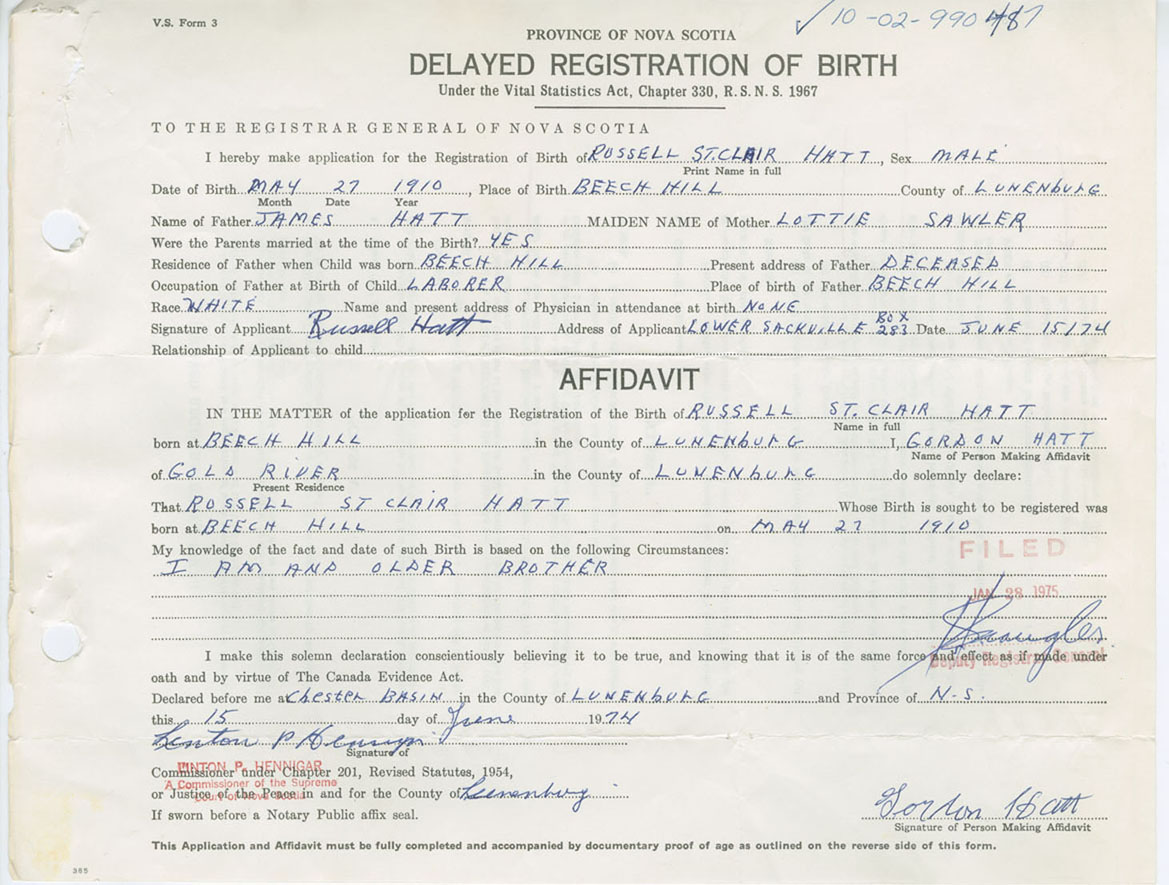 V.S. Form 3
✓ 10-02-990487
PROVINCE OF NOVA SCOTIA
DELAYED REGISTRATION OF BIRTH
Under the Vital Statistics Act, Chapter 330, R.S.N.S. 1967
TO THE REGISTRAR GENERAL OF NOVA SCOTIA
I hereby make application for the Registration of Birth of RUSSELL ST.CLAIR HATT, Sex MALE
Print Name in full
Date of Birth MAY 27 1910, Place of Birth BEECH HILL County of LUNENBURG
Month Date Year
Name of Father JAMES HATT MAIDEN NAME of Mother LOTTIE SAWLER
Were the Parents married at the time of the Birth? YES
Residence of Father when Child was born BEECH HILL Present address of Father DECEASED
Occupation of Father at Birth of Child LABORER Place of birth of Father BEECH HILL
Race WHITE Name and present address of Physician in attendance at birth NONE
Signature of Applicant Russell Hatt Address of Applicant LOWER SACKVILLE BOX 283 Date JUNE 15/74
Relationship of Applicant to child
AFFIDAVIT
IN THE MATTER of the application for the Registration of the Birth of RUSSELL ST. CLAIR HATT
Name in full
born at BEECH HILL in the County of LUNENBURG I, GORDON HATT
Name of Person Making Affidavit
of GOLD RIVER in the County of LUNENBURG do solemnly declare:
Present Residence
That RUSSELL ST CLAIR HATT Whose Birth is sought to be registered was
born at BEECH HILL on MAY 27 1910
My knowledge of the fact and date of such Birth is based on the following Circumstances:
I AM AND OLDER BROTHER
FILED
JAN 28 1975
Deputy Registrar General
I make this solemn declaration conscientiously believing it to be true, and knowing that it is of the same force and effect as if made under
oath and by virtue of The Canada Evidence Act.
Declared before me at Chester BASIN in the County of LUNENBURG and Province of N.S.
this 15 day of June 1974
Linton P Hennigar
Signature of
LINTON P. HENNIGAR
Commissioner under Chapter 201, Revised Statutes, 1954,
A Commissioner of the Supreme
or Justice of the Peace in and for the County of Lunenburg
Court of Nova Scotia
If sworn before a Notary Public affix seal.
Gordon Hatt
Signature of Person Making Affidavit
This Application and Affidavit must be fully completed and accompanied by documentary proof of age as outlined on the reverse side of this form.
365